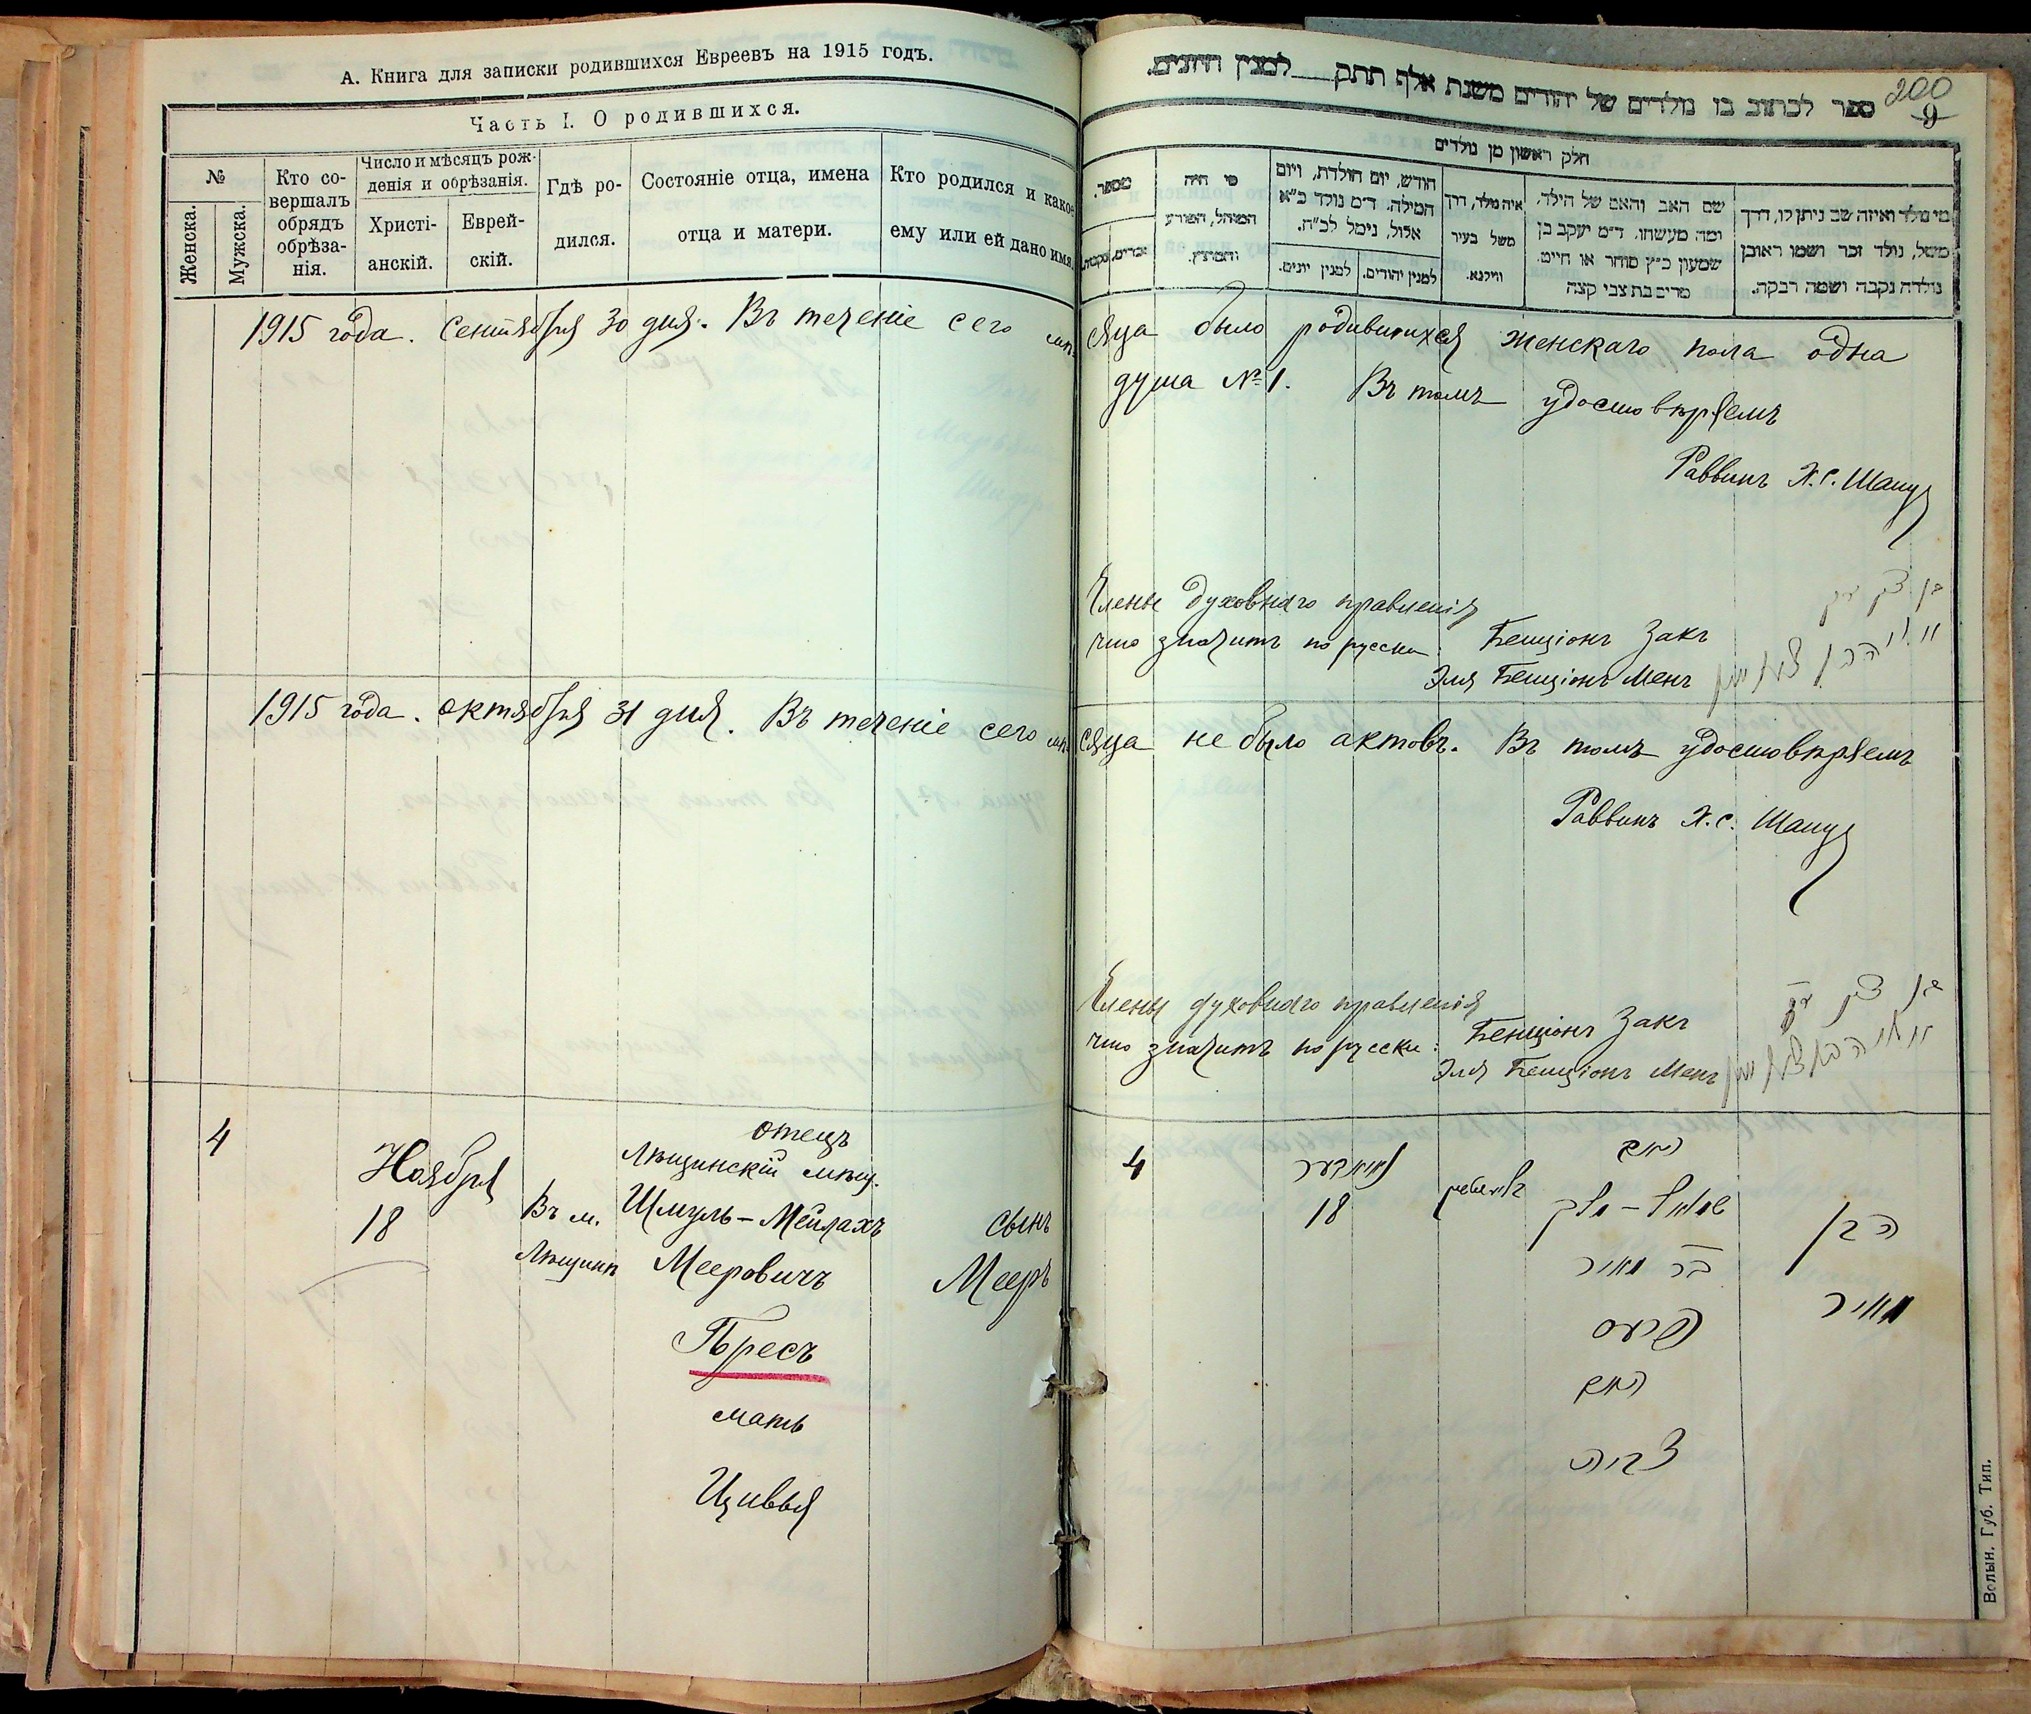 А. Книга для записки родившихся Евреевъ на 1915 годъ.
Часть I. О родившихся.
№
Женска.
Мужска.
Кто со-
вершалъ
обрядъ
обрѣза-
нія.
Число и мѣсяцъ рож-
денія и обрѣзанія.
Христі-
анскій.
Еврей-
скій.
Гдѣ ро-
дился.
Состояніе отца, имена
отца и матери.
Кто родился и какое
ему или ей дано имя.
1915 года. Сентября 30 дня. Въ теченіе сего мѣ-
1915 года. октября 31 дня. Въ теченіе сего мѣ-
4
Ноября
18
Въ м.
отецъ
мѣщ.
Шмуль-Мейлахъ
Мееровичъ
Пересъ
мать
Цивья
сынъ
Мееръ
200
9
ספר לכתוב בו נולדים של יהודים משנת אלף תתק למנין היונים.
חלק ראשון מן נולדים
מספר.
זכרים.
נקבות.
מי היה
המוהל, הפורע
והמוצץ.
חודש, יום הולדת, ויום
המילה. ד״מ נולד כ״א
אלול, נימל לכ״ח.
למנין יונים.
למנין יהודים.
איה נולד, דרך
משל בעיר
ווילנא.
שם האב והאם של הילד,
ומה מעשהו. ד״מ יעקב בן
שמעון כ״ץ סוחר או חייט.
מרים בת צבי קצה
מי נולד ואיזה שם ניתן לו, דרך
משל, נולד זכר ושמו ראובן
נולדה נקבה ושמה רבקה.
сяца было родившихся женскаго пола одна
душа № 1. Въ томъ удостовѣряемъ
Раввинъ Х. С.
Члены духовнаго правленія
что значитъ по русски: Бенціонъ Закъ
Эля Бенціонъ Менъ
сяца не было актовъ. Въ томъ удостовѣряемъ
Раввинъ Х. С.
Члены духовнаго правленія
что значитъ по русски: Бенціонъ Закъ
Эля Бенціонъ Менъ
4
18
האב
שמואל-מלך
בר מאיר
פערעס
האם
צביה
הבן
מאיר
Волын. Губ. Тип.